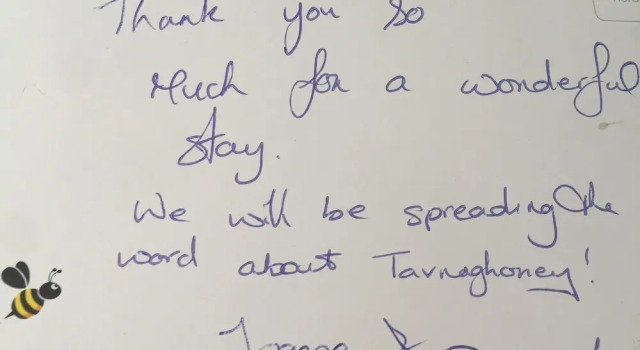 Thank you so
much for a wonderful
stay.
We will be spreading the
word about Tavnaghoney!